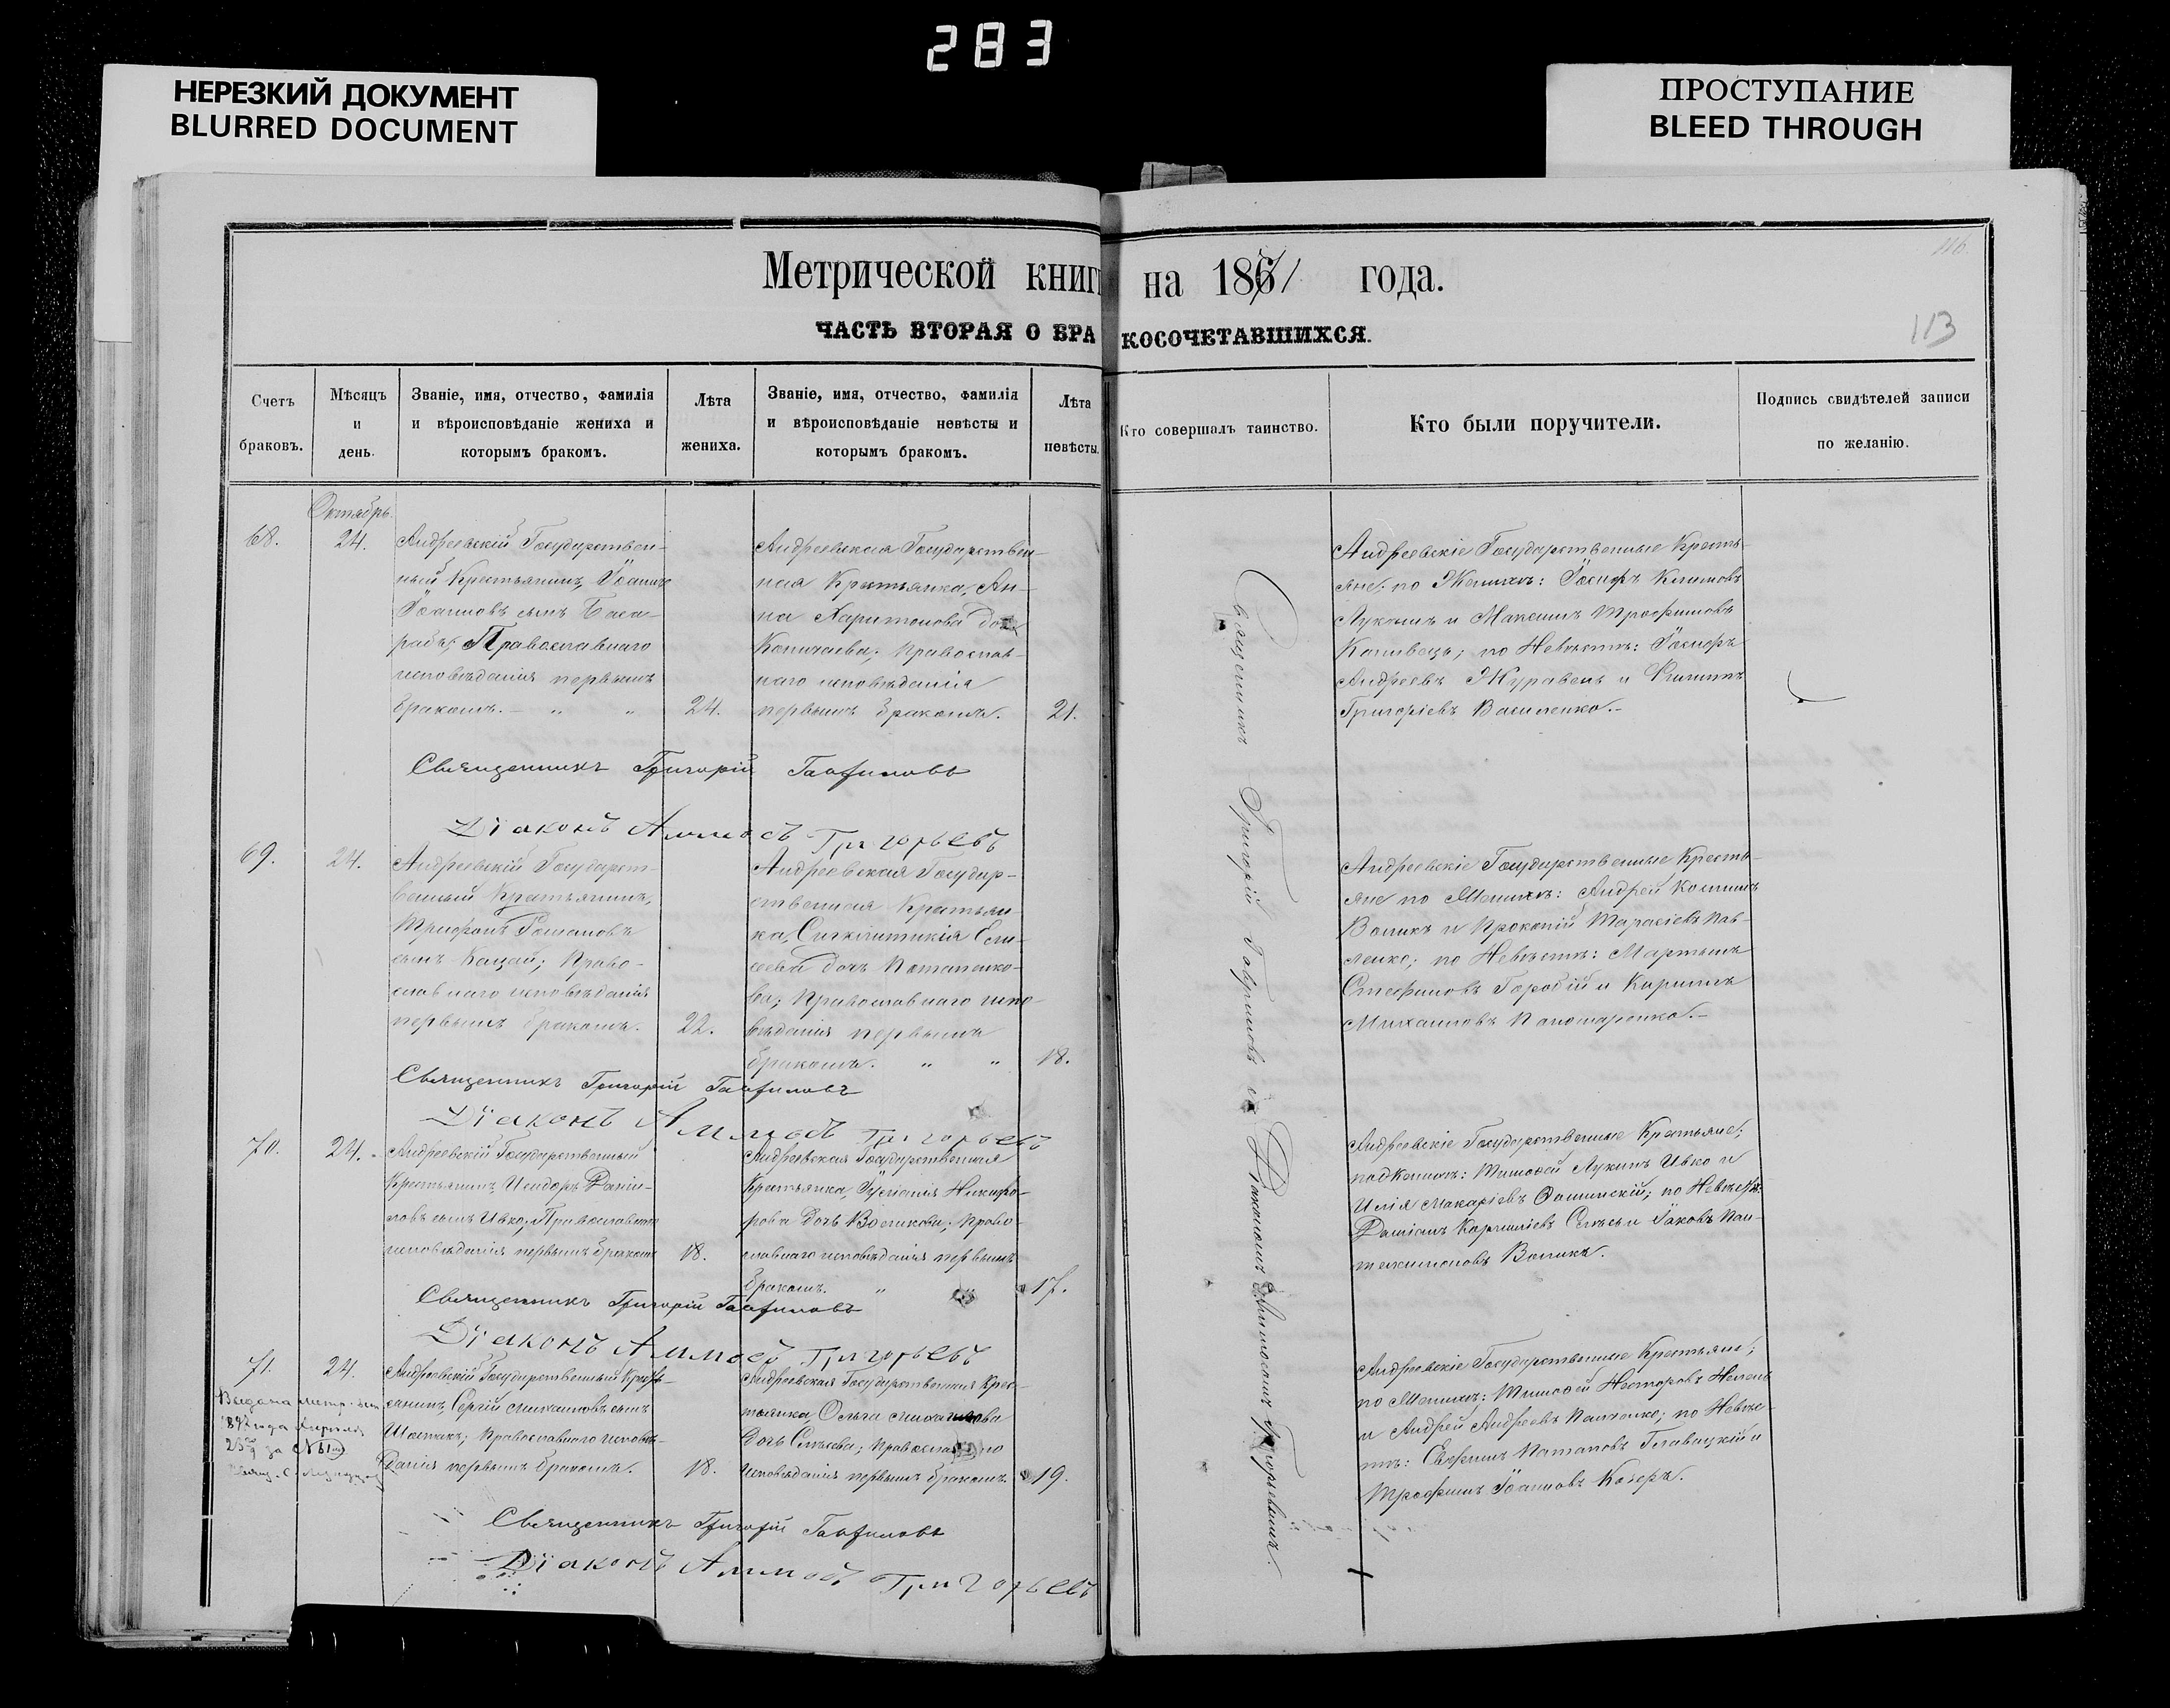 283
НЕРЕЗКИЙ ДОКУМЕНТ
BLURRED DOCUMENT
ПРОСТУПАНИЕ
BLEED THROUGH
116
113
Метрической книги на 1871 года.
ЧАСТЬ ВТОРАЯ О БРАКОСОЧЕТАВШИХСЯ.
Счетъ браковъ.
Мѣсяцъ и день.
Званіе, имя, отчество, фамилія и вѣроисповѣданіе жениха и которымъ бракомъ.
Лѣта жениха.
Званіе, имя, отчество, фамилія и вѣроисповѣданіе невѣсты и которымъ бракомъ.
Лѣта невѣсты.
Кто совершалъ таинство.
Кто были поручители.
Подпись свидѣтелей записи по желанію.
Октябрь.
68.
24.
Андреевскій Государствен-
ный Крестьянинъ, Іоаннъ
Іоанновъ сынъ Баса-
рабъ; Православнаго
исповѣданія первымъ
бракомъ. – „ „
24.
Андреевская Государствен-
ная Крестьянка, Ан-
на Харитонова дочь
Копичаева; православ-
наго исповѣданія
первымъ бракомъ.
21.
Андреевскіе Государственные Кресть-
яне; по Женихѣ: Іосифъ Климовъ
Лукашъ и Максимъ Трофимовъ
по Невѣстѣ: Іосифъ
Андреевъ Журавель и Филиппъ
Григоріевъ Василенко.–
Священникъ Григорій Гавриловъ
Діаконъ Аммосъ Григорьевъ
69.
24.
Андреевскій Государст-
венный Крестьянинъ,
Трифонъ Романовъ
сынъ Кацай; Право-
славнаго исповѣданія
первымъ бракомъ.
22.
Андреевская Государ-
ственная Крестьян-
ка, Синклитикія Ели-
сеева дочь Потапенко-
ва; Православнаго испо-
вѣданія первымъ
бракомъ. „ „
18.
Андреевскіе Государственные Кресть-
яне по Женихѣ: Андрей Косминъ
Воликъ и Прокопій Тарасіевъ Пав-
ленко; по Невѣстѣ: Мартинъ
Стефановъ Горобій и Кириллъ
Михаиловъ Пономаренко.–
Священникъ Григорій Гавриловъ
Діаконъ Аммосъ Григорьевъ
70.
24.
Андреевскій Государственный
Крестьянинъ, Исидоръ Даніи-
ловъ сынъ Ивко; Православнаго
исповѣданія первымъ бракомъ
18.
Андреевская Государственная
Крестьянка, Іуліанія Никифо-
рова дочь Воликова; Право-
славнаго исповѣданія первымъ
бракомъ. „ „
17.
Андреевскіе Государственные Крестьяне;
по Женихѣ: Тимофей Лукинъ Ивко и
Илія Макаріевъ по Невѣстѣ:
Даміанъ Корниліевъ и Іаковъ Пан-
телимоновъ Воликъ.
Священникъ Григорій Гавриловъ
Діаконъ Аммосъ Григорьевъ
71.
24.
Андреевскій Государственный Кресть-
янинъ, Сергій Михаиловъ сынъ
Шостакъ; Православнаго исповѣ-
данія первымъ бракомъ.
18.
Андреевская Государственная Крес-
тьянка, Ольга Михаилова
дочь Сиысева; Православнаго
исповѣданія первымъ бракомъ.
19.
Андреевскіе Государственные Крестьяне;
по Женихѣ: Тимофей Несторовъ
и Андрей Андреевъ Панченко; по Невѣс-
тѣ: Потаповъ Главацкій и
Трофимъ Іоанновъ Козеръ.
Выдана метр.
года Апрѣля
за №
Священникъ Григорій Гавриловъ
Діаконъ Аммосъ Григорьевъ
Священникъ Григорій Гавриловъ съ Діакономъ Амммосомъ Григорьевымъ.